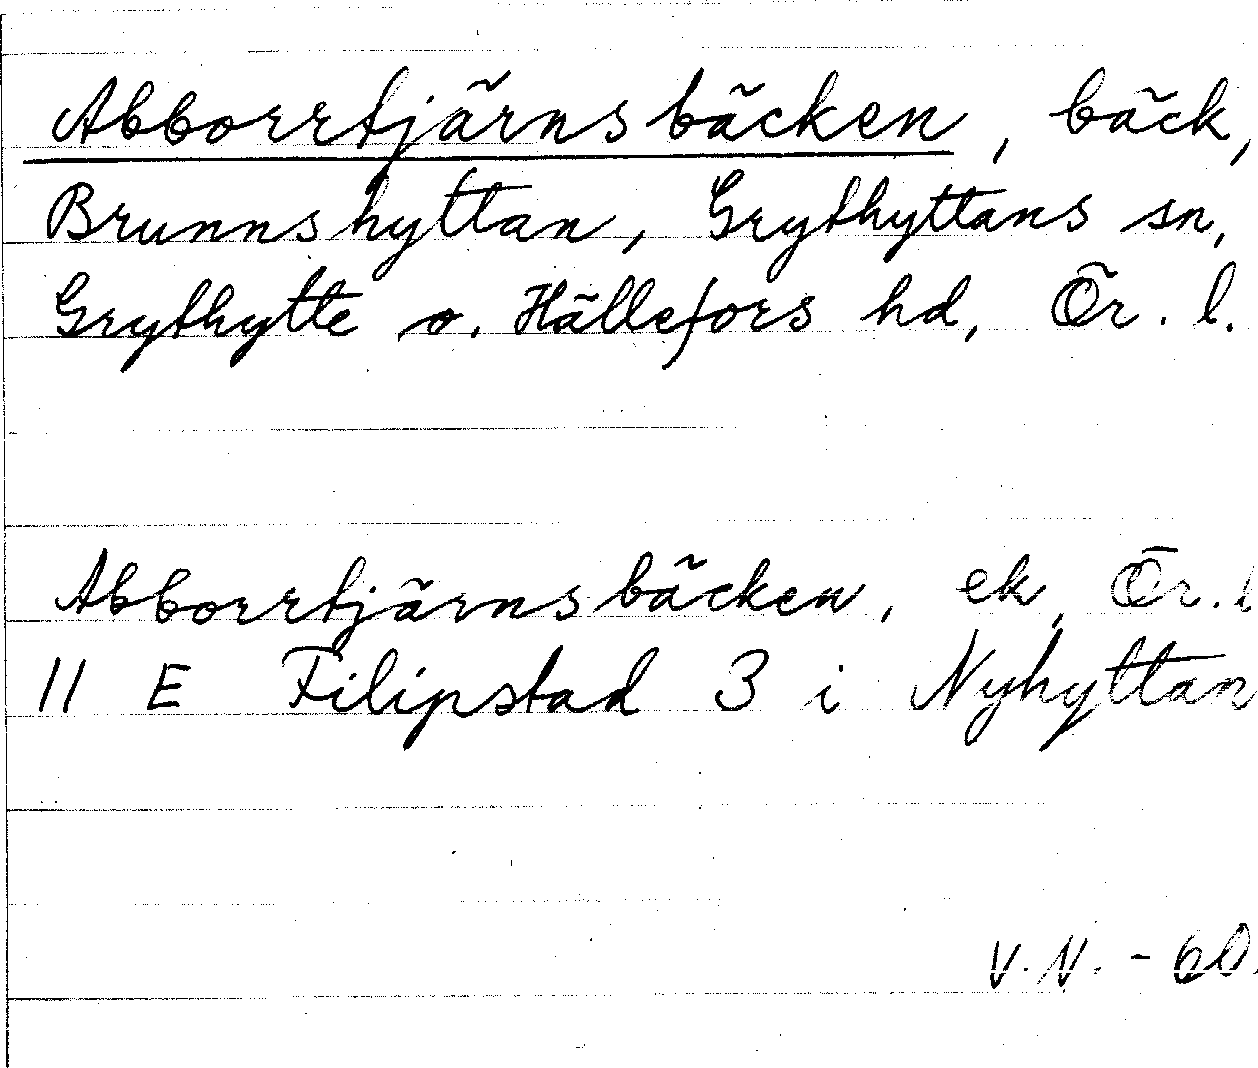 Abborrtjärnsbäcken, bäck,
Brunnshyttan, Grythyttans sn,
Grythytte o. Hällefors hd, Ör. l.
Abborrtjärnsbäcken, ek, Ör. l
11 E Filipstad 3 i Nyhyttan
V.N. - 60.